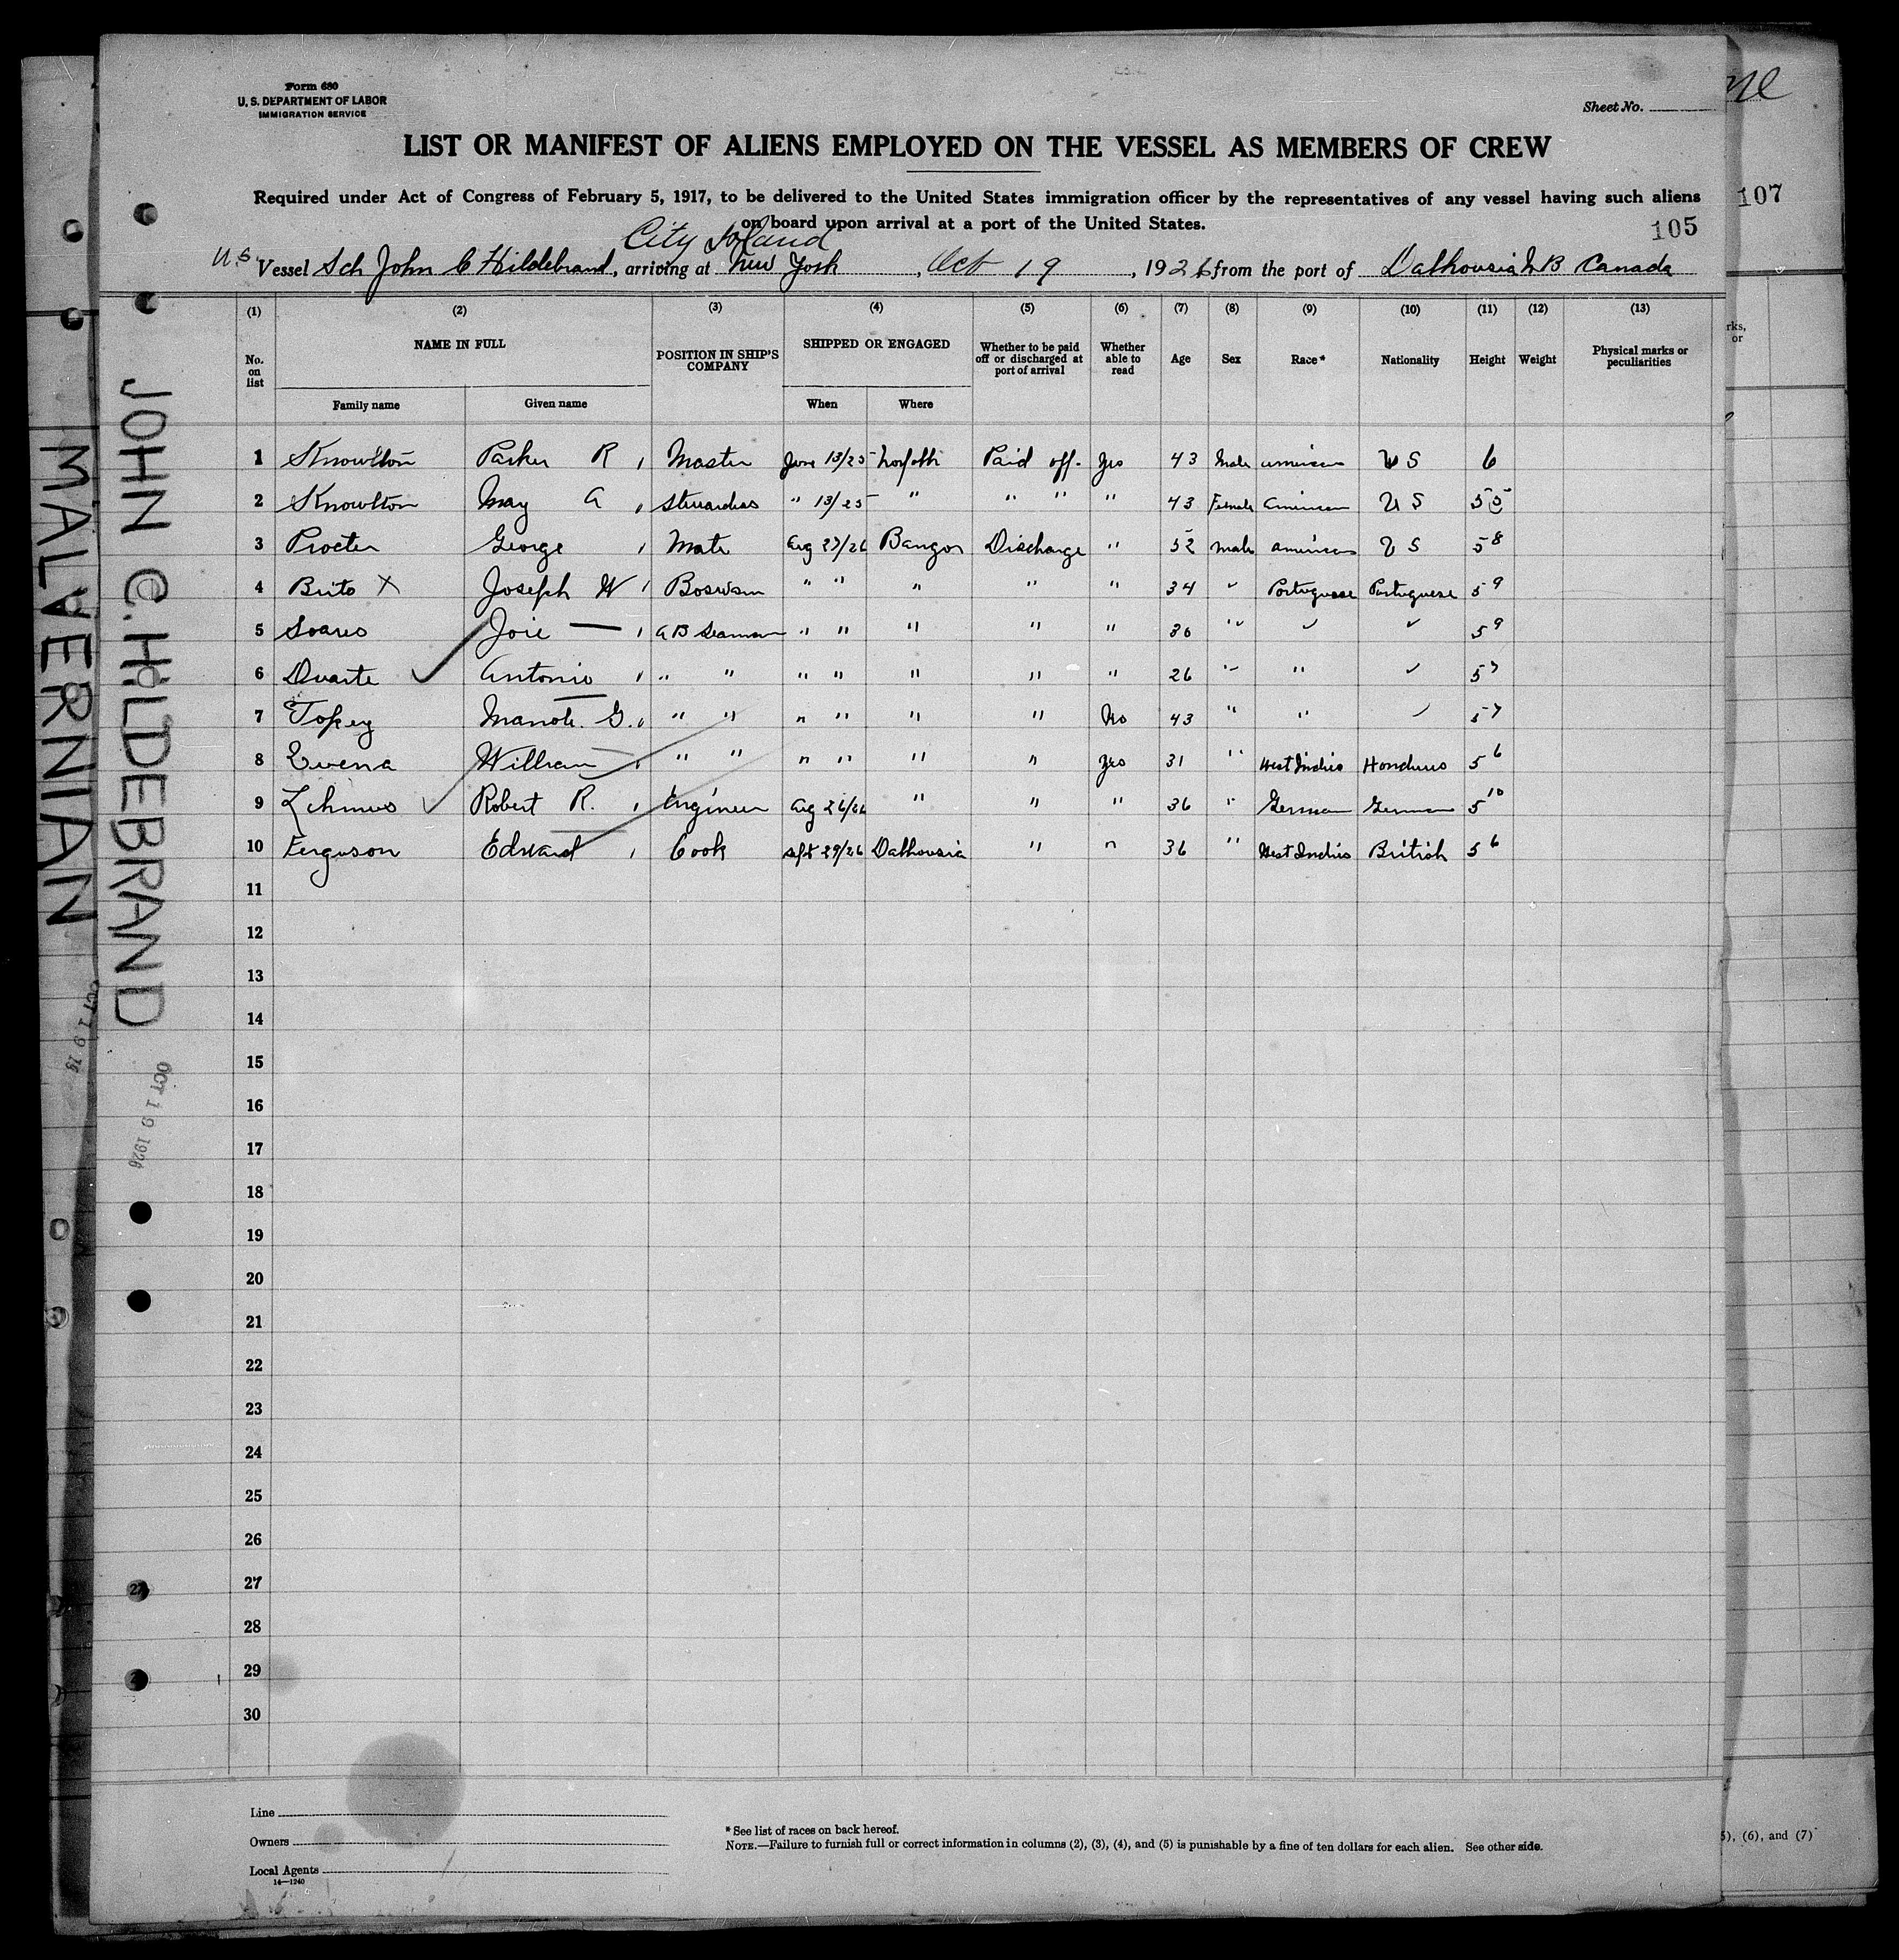 Form 680
U. S. DEPARTMENT OF LABOR
IMMIGRATION SERVICE
Sheet No.
LIST OR MANIFEST OF ALIENS EMPLOYED ON THE VESSEL AS MEMBERS OF CREW
Required under Act of Congress of February 5, 1917, to be delivered to the United States immigration officer by the representatives of any vessel having such aliens
on board upon arrival at a port of the United States.
107
105
City Island
U.S. Vessel Sch John C Hildebrand, arriving at New York, Oct 19, 1926 from the port of Dalhousie N B Canada
(1) (2) (3) (4) (5) (6) (7) (8) (9) (10) (11) (12) (13)
No. on list NAME IN FULL POSITION IN SHIP'S COMPANY SHIPPED OR ENGAGED Whether to be paid off or discharged at port of arrival Whether able to read Age Sex Race* Nationality Height Weight Physical marks or peculiarities
Family name Given name When Where
1 Knowlton Parker R Master June 13/25 Norfolk Paid off. Yes 43 Male American U S 6
2 Knowlton May A Stewardess " 13/25 " " " " 43 Female American U S 5 5
3 Procter George Mate Aug 27/26 Bangor Discharge " 52 Male American U S 5 8
4 Brito X Joseph W Boswain " " " " " 34 " Portuguese Portuguese 5 9
5 Soares Joie — A B Seaman " " " " " 30 " " " 5 9
6 Duarte Antonio " " " " " " " 26 " " " 5 7
7 Manole. G. " " " " " " No 43 " " " 5 7
8 William " " " " " " Yes 31 " West Indies Honduras 5 6
9 Lehmus Robert R. Engineer Aug 26/26 " " " 36 " German German 5 10
10 Ferguson Edward Cook Sept 29/26 Dalhousie " " 36 " West Indies British 5 6
11
12
13
14
15
16
17
18
19
20
21
22
23
24
25
26
27
28
29
30
Line
Owners
Local Agents
14—1240
* See list of races on back hereof.
NOTE.—Failure to furnish full or correct information in columns (2), (3), (4), and (5) is punishable by a fine of ten dollars for each alien. See other side.
JOHN C. HILDEBRAND
OCT 19 1926
MALVERNIAN
OCT 19 19
rks,
or
5), (6), and (7)